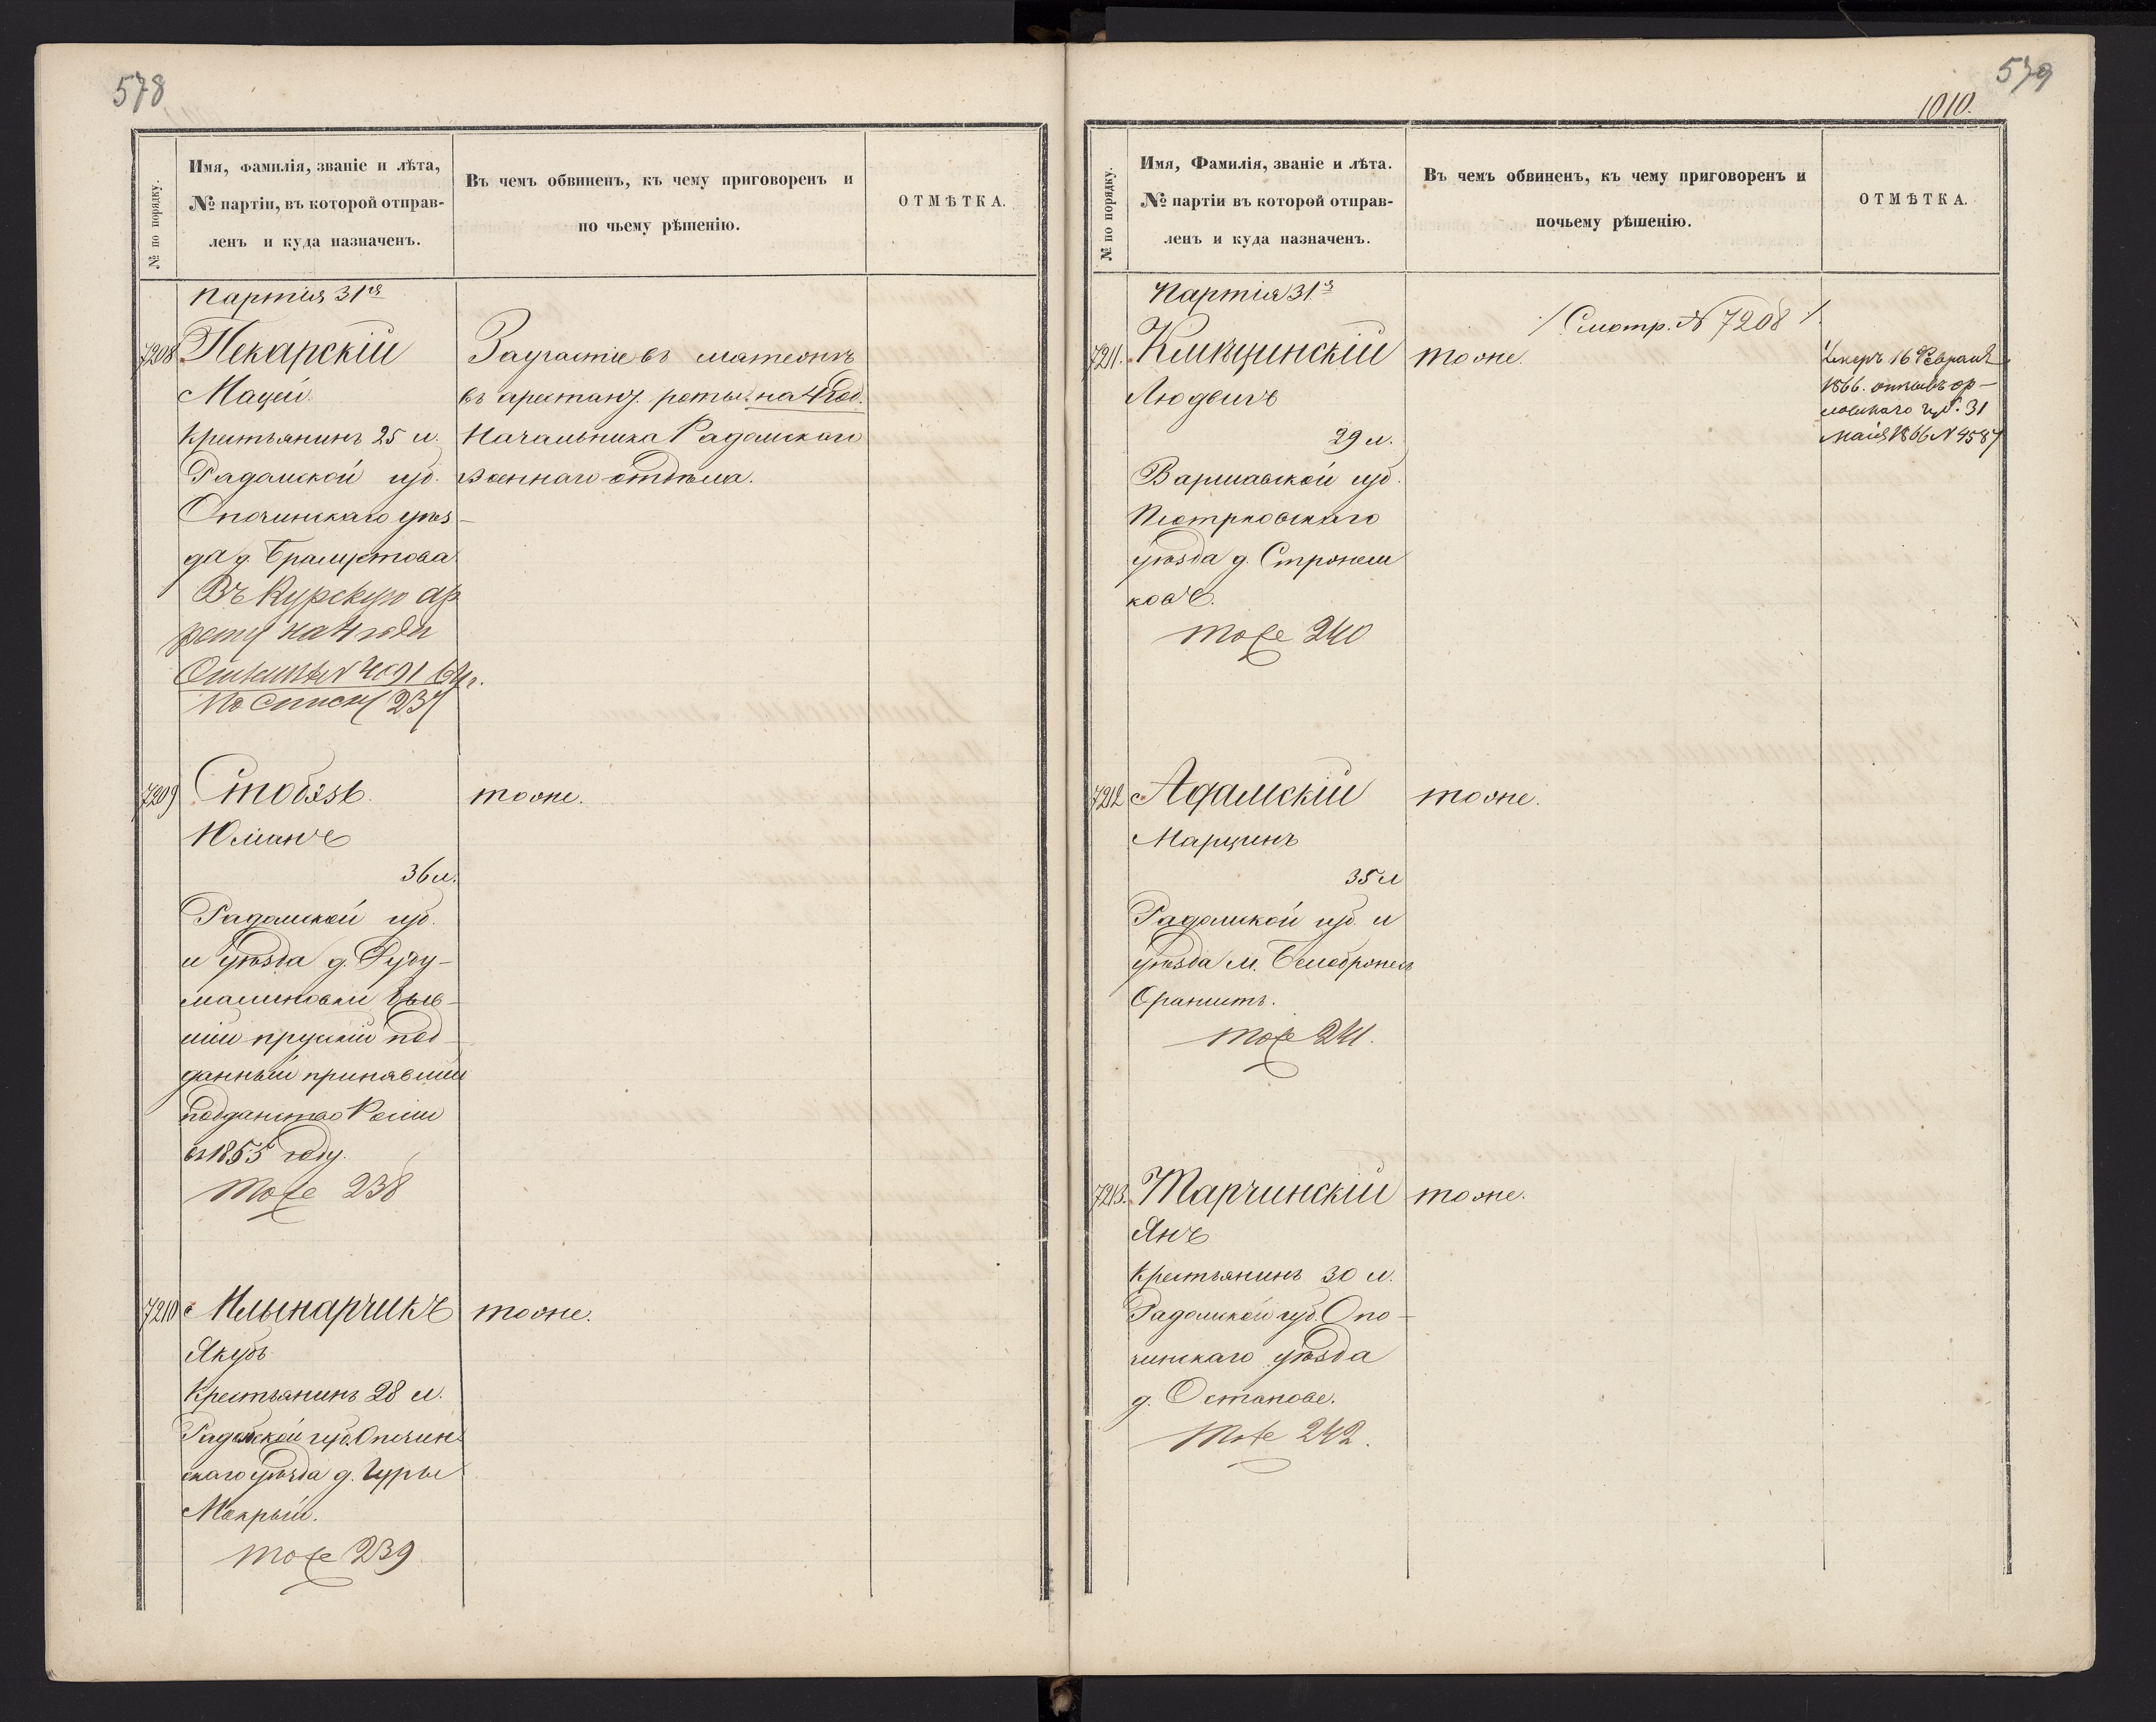 578
№ по порядку.
Имя, фамилія, званіе и лѣта,
№ партіи, въ которой отправ-
ленъ и куда назначенъ.
Въ чемъ обвиненъ, къ чему приговоренъ и
по чьему рѣшенію.
ОТМѢТКА.
Партія 31я
7208
Пекарскій
Мацей.
Крестьянинъ 25 л.
Радомской губ.
Опочинскаго уѣз-
да д.
Въ Курскую ар
роту на 4 года
№ 4091 64 г.
По списку 237
За участіе въ мятежѣ
въ арестант. роты на 4 год.
Начальника Радомскаго
военнаго отдѣла.
7209
Стобзъ.
Юліанъ
36 л.
Радомской губ.
и уѣзда д. Руду-
малиновки быв-
шій прускій под-
данный принявшій
подданство Росіи
въ 1855 году.
тоже 238
тоже.
7210
Млынарчикъ
Якубъ
Крестьянинъ 28 л.
Радомской губ. Опочин
скаго уѣзда д. Гуры
Мокрый.
тоже 239
тоже.
579
1010.
№ по порядку.
Имя, Фамилія, званіе и лѣта.
№ партіи въ которой отправ-
ленъ и куда назначенъ.
Въ чемъ обвиненъ, къ чему приговоренъ и
почьему рѣшенію.
ОТМѢТКА.
Партія 31я
/ Смотр. № 7208 /.
7211.
Людвигъ
29 л.
Варшавской губ.
Піотрковскаго
уѣзда д. Стронни
ковъ.
тоже 240
тоже.
Умеръ 16 Февраля
1866. отзывъ ор-
ловскаго губ. 31
мая 1866 № 4587
7212
Адамскій
Марцинъ
35 л
Радомской губ. и
уѣзда м.
тоже 241.
тоже.
7213.
Тарчинскій
Янъ
Крестьянинъ 30 л.
Радомской губ. Опо-
чинскаго уѣзда
д. Останове.
тоже 242.
тоже.